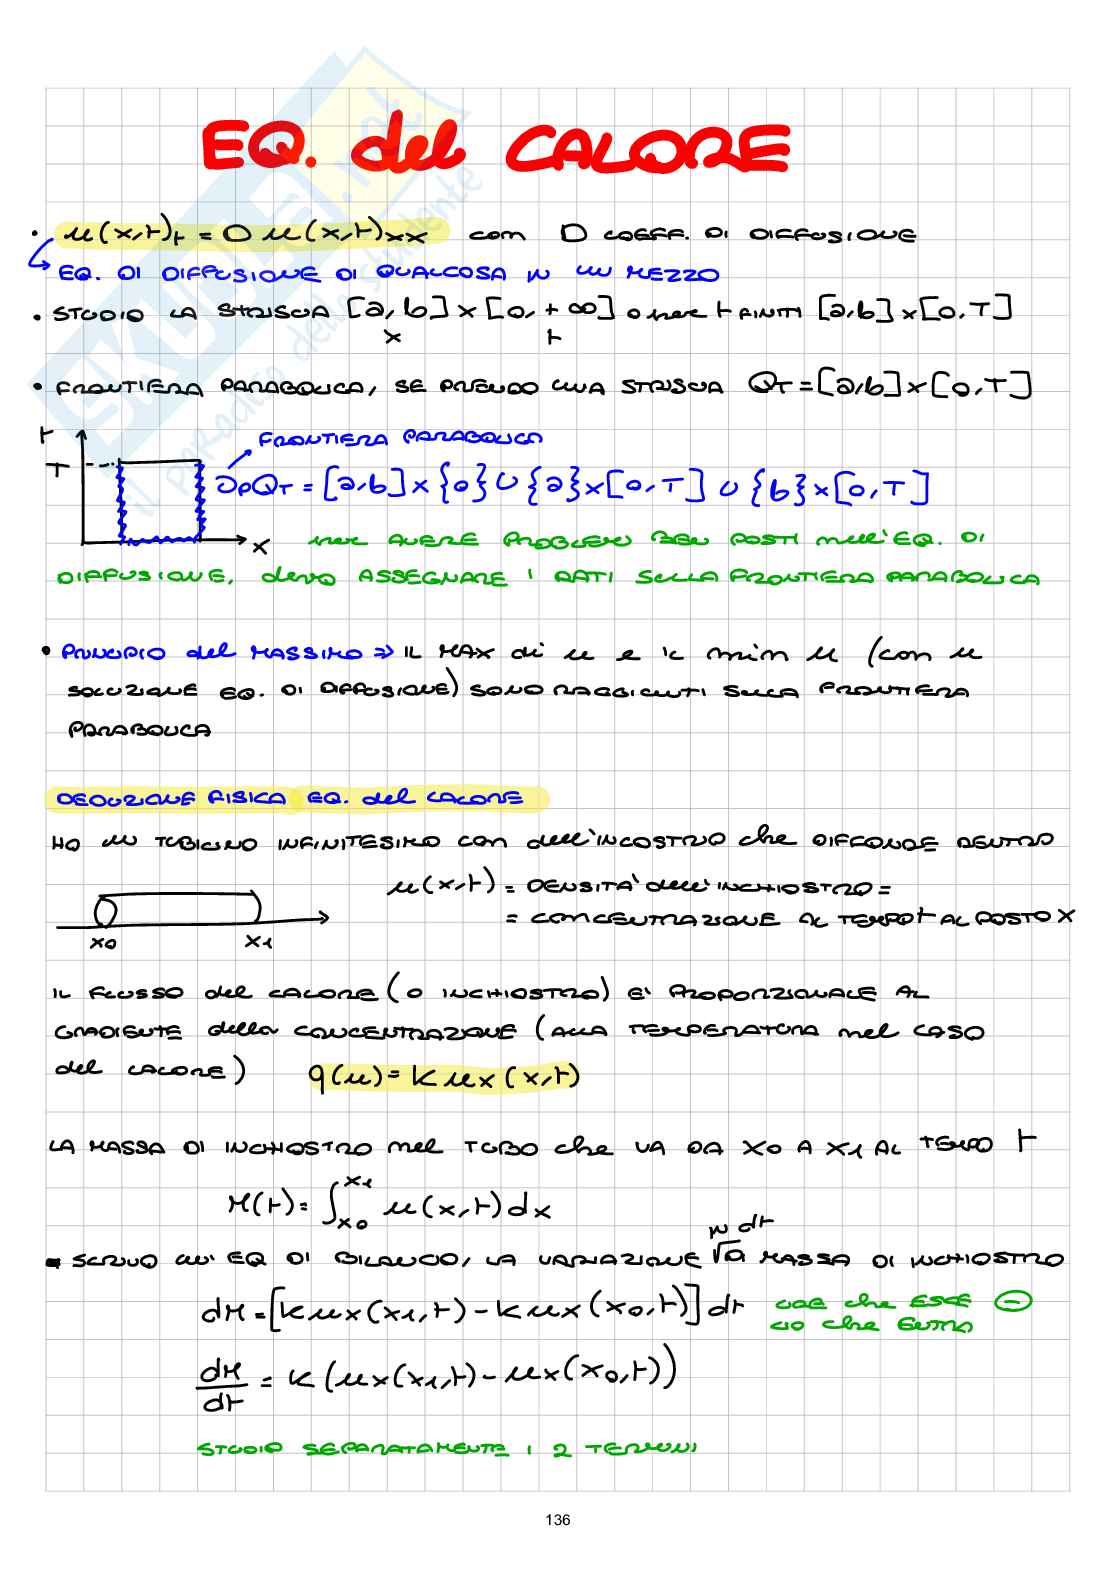 EQ. del CALORE
• u(x,t)t = D u(x,t)xx con D COEFF. DI DIFFUSIONE
↳ EQ. DI DIFFUSIONE DI QUALCOSA IN UN MEZZO
• STUDIO LA STRISCIA [a,b]×[0,+∞] o per t FINITI [a,b]×[0,T]
x t
• FRONTIERA PARABOLICA, SE PRENDO UNA STRISCIA QT = [a,b]×[0,T]
t
FRONTIERA PARABOLICA
T
∂pQT = [a,b]×{0} ∪ {a}×[0,T] ∪ {b}×[0,T]
x
per AVERE PROBLEMI BEN POSTI nell'EQ. DI
DIFFUSIONE, devo ASSEGNARE I DATI SULLA FRONTIERA PARABOLICA
• PRINCIPIO del MASSIMO ⇒ IL MAX di u e il min u (con u
SOLUZIONE EQ. DI DIFFUSIONE) SONO RAGGIUNTI SULLA FRONTIERA
PARABOLICA
DEDUZIONE FISICA EQ. del CALORE
HO UN TUBICINO INFINITESIMO CON dell'INCOSTRO che DIFFONDE DENTRO
u(x,t) = DENSITA' dell'INCHIOSTRO =
= CONCENTRAZIONE AL TEMPO t AL POSTO x
x0 x1
IL FLUSSO del CALORE (O INCHIOSTRO) E' PROPORZIONALE AL
GRADIENTE della CONCENTRAZIONE (ALLA TEMPERATURA nel CASO
del CALORE) q(u) = K ux (x,t)
LA MASSA DI INCHIOSTRO nel TUBO che VA DA x0 A x1 AL TEMPO t
M(t) = ∫x0x1 u(x,t) dx
IN dt
SCRIVO UN' EQ DI BILANCIO, LA VARIAZIONE √a MASSA DI INCHIOSTRO
dM = [K ux(x1,t) - K ux(x0,t)] dt
CIOE che ESCE ⊖
CIO che ENTRA
dM/dt = K (ux(x1,t) - ux(x0,t))
STUDIO SEPARATAMENTE I 2 TERMINI
136
SKUOLA.net
il paradiso dello studente